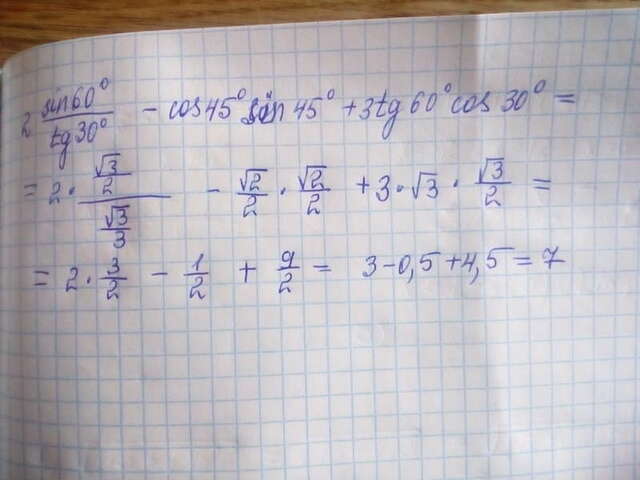 2 sin60°/tg30° - cos45° sin45° + 3tg60° cos30° =
= 2 · (√3/2)/(√3/3) - √2/2 · √2/2 + 3 · √3 · √3/2 =
= 2 · 3/2 - 1/2 + 9/2 = 3 - 0,5 + 4,5 = 7